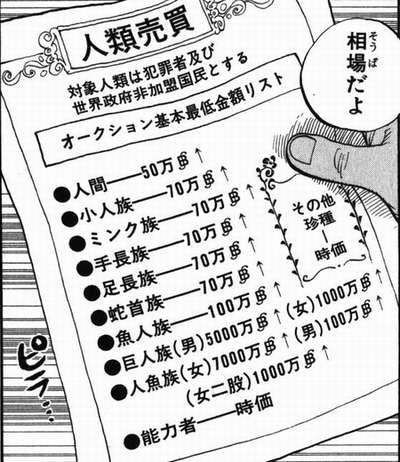 相場だよ
そうば
人類売買
対象人類は犯罪者及び
世界政府非加盟国民とする
オークション基本最低金額リスト
●人間──50万฿↑
●小人族──70万฿↑
●ミンク族──70万฿↑
●手長族──70万฿↑
●足長族──70万฿↑
●蛇首族──70万฿↑
●魚人族──100万฿↑
●巨人族(男)5000万฿↑(女)1000万฿↑
●人魚族(女)7000万฿↑(男)100万฿↑
(女二股)1000万฿↑
●能力者──時価
その他
珍種
│
時価
ピラ…